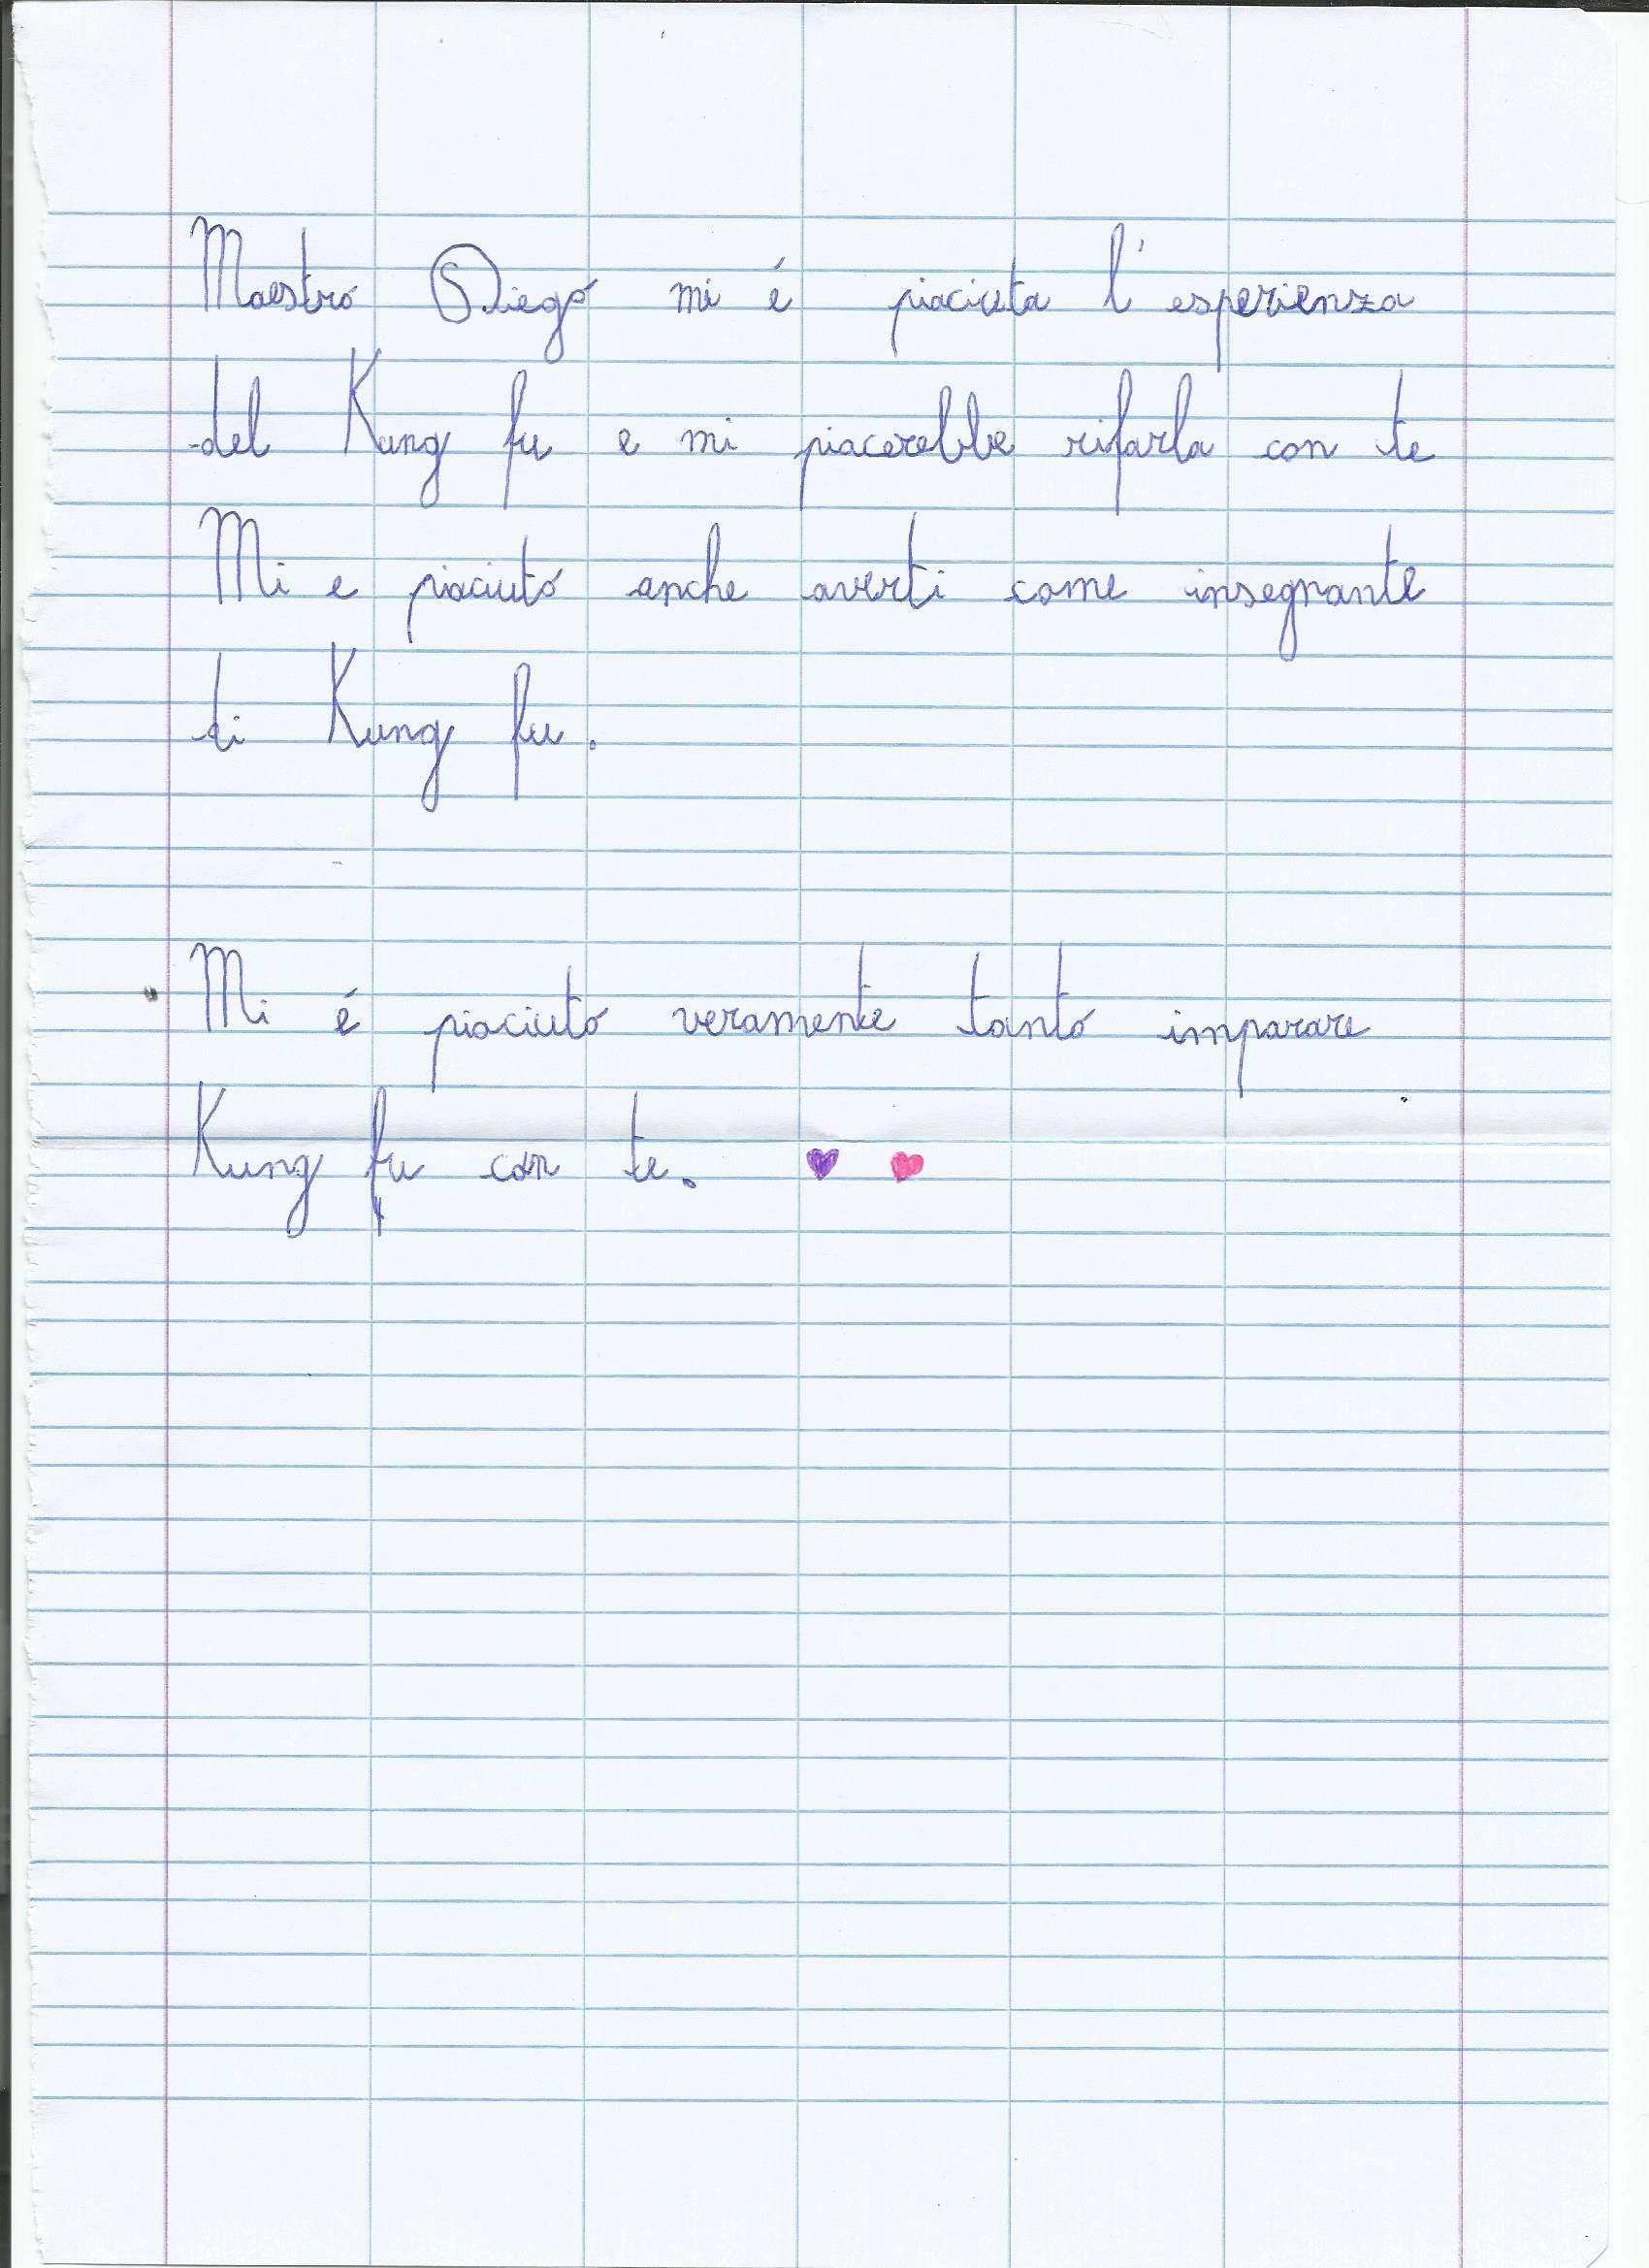 Maestro Diego mi é piaciuta l'esperienza
del Kung fu e mi piacerebbe rifarla con te
Mi e piaciuto anche averti come insegnante
di Kung fu.
Mi é piaciuto veramente tanto imparare
Kung fu con te.